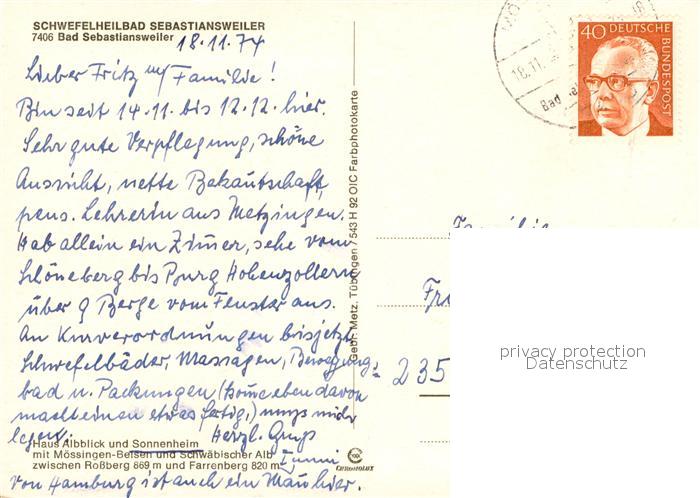 SCHWEFELHEILBAD SEBASTIANSWEILER
7406 Bad Sebastiansweiler
18.11.74
Lieber Fritz u/ Familie!
Bin seit 14.11. bis 12.12. hier.
Sehr gute Verpflegung, schöne
Aussicht, nette Bekantschaft,
pens. Lehrerin aus Metzingen.
Hab allein ein Zimer, sehe vom
Schöneberg bis Burg Hohenzollern
über 9 Berge vom Fenster aus.
An Kurverordnungen bisjetzt
Schwefelbäder, Massagen, Bewegungs
bad u. Packungen (kome eben davon
macht einen etwas fertig,) muss mich
legen. Herzl. Gruß
Haus Albblick und Sonnenheim
mit Mössingen-Belsen und Schwäbischer Alb
zwischen Roßberg 869 m und Farrenberg 820 m
von Hamburg ist auch ein Man hier.
Gebr. Metz, Tübingen / 543 H 92 OIC Farbphotokarte
CHROMOLUX
18.11.
Bad
40 DEUTSCHE
BUNDESPOST
Familie
Fri
235
privacy protection
Datenschutz